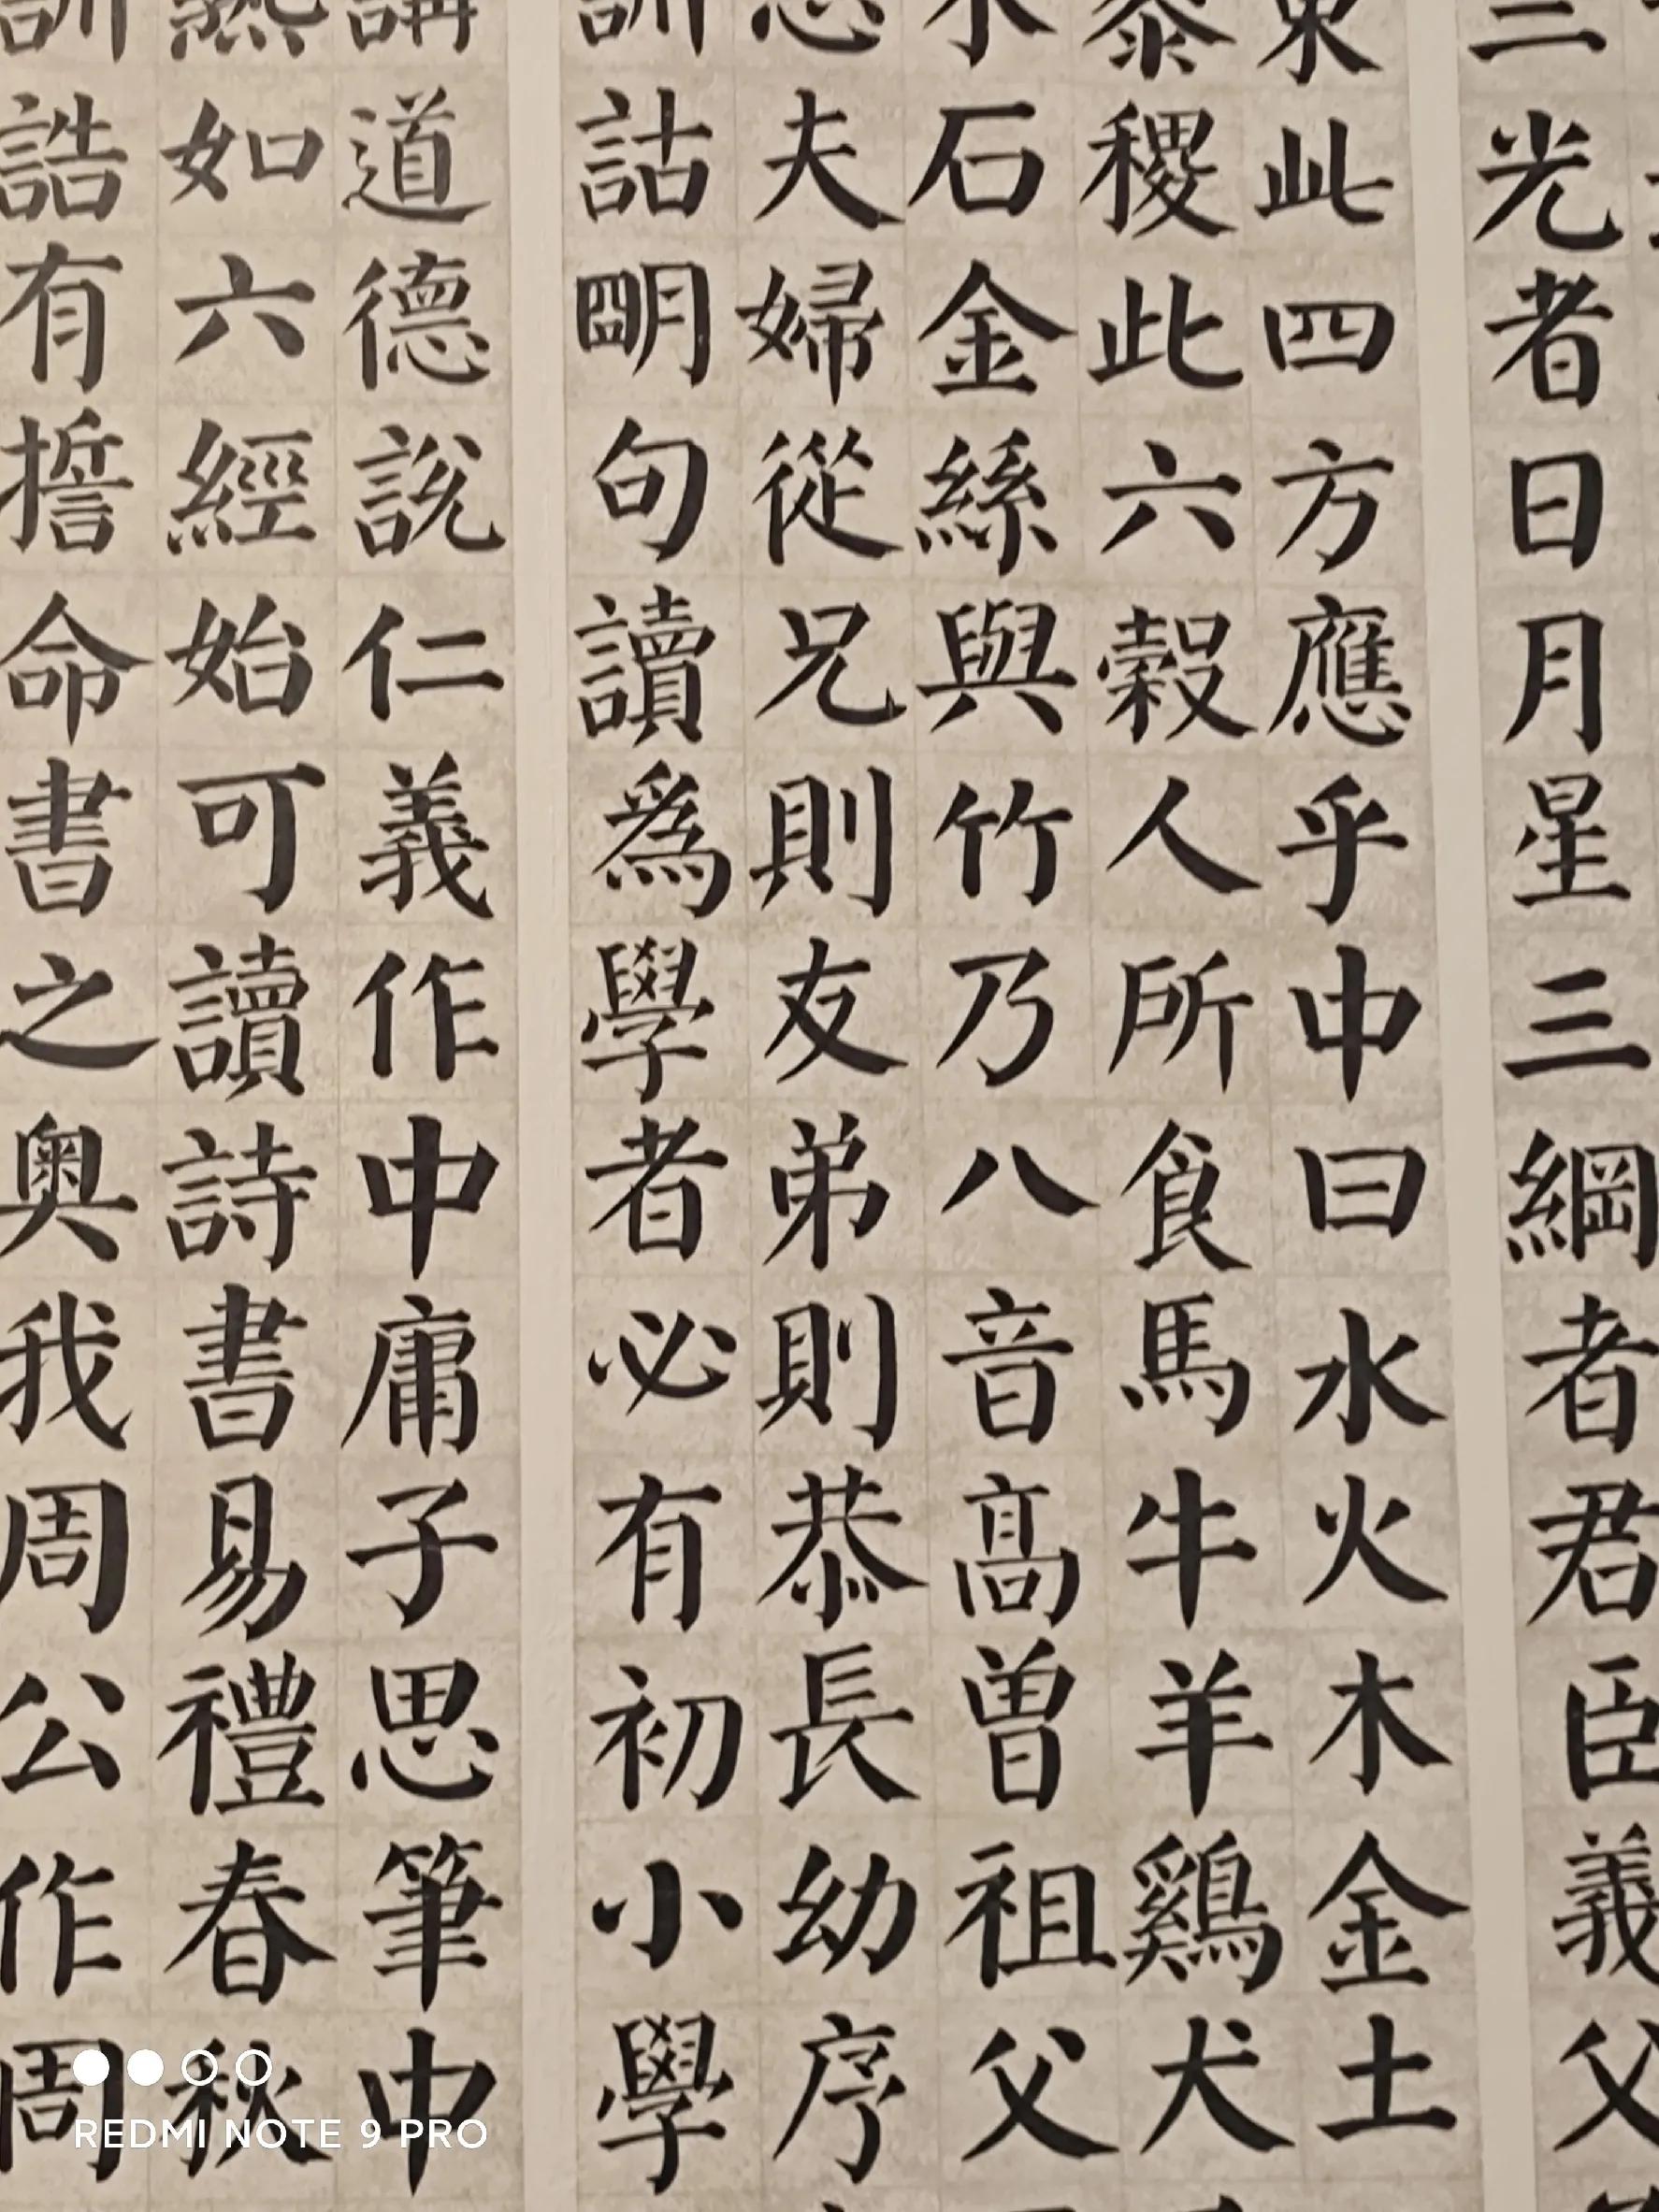 三光者日月星三綱者君臣義父
東此四方應乎中曰水火木金土
黍稷此六穀人所食馬牛羊鷄犬
石金絲與竹乃八音高曾祖父
夫婦從兄則友弟則恭長幼序
訓詁明句讀爲學者必有初小學
講道德說仁義作中庸子思筆中
熟如六經始可讀詩書易禮春秋
訓誥有誓命書之奧我周公作周
REDMI NOTE 9 PRO